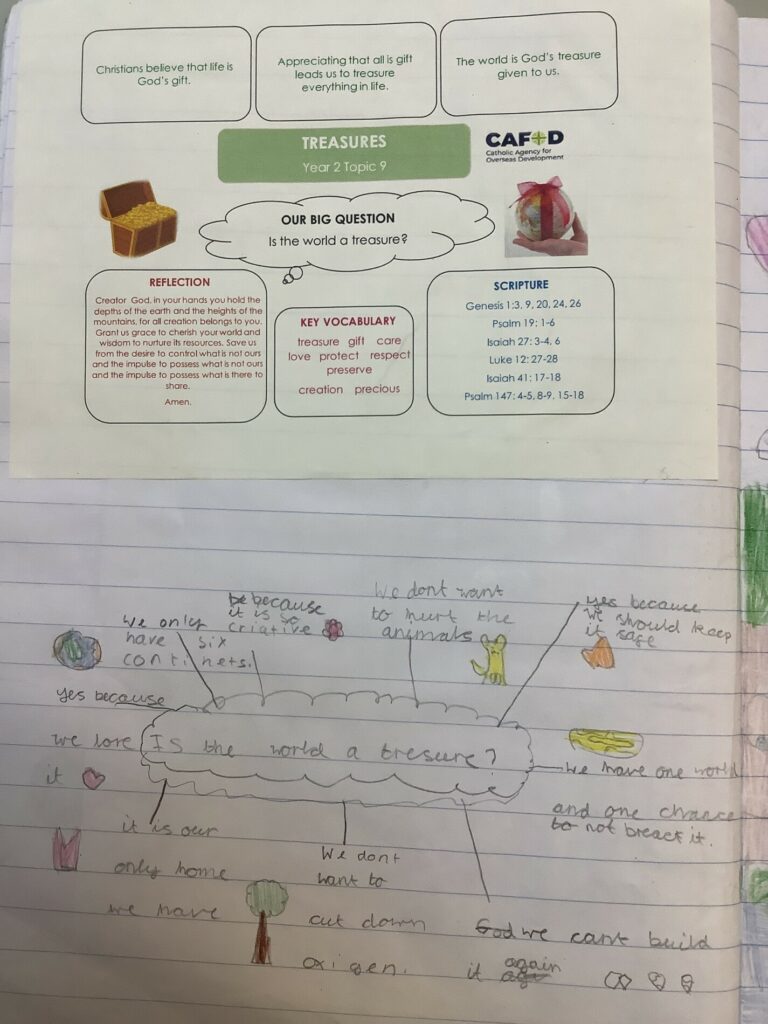 Christians believe that life is
God's gift.
Appreciating that all is gift
leads us to treasure
everything in life.
The world is God's treasure
given to us.
TREASURES
Year 2 Topic 9
CAFOD
Catholic Agency for
Overseas Development
OUR BIG QUESTION
Is the world a treasure?
REFLECTION
Creator God, in your hands you hold the
depths of the earth and the heights of the
mountains, for all creation belongs to you.
Grant us grace to cherish your world and
wisdom to nurture its resources. Save us
from the desire to control what is not ours
and the impulse to possess what is not ours
and the impulse to possess what is there to
share.
Amen.
KEY VOCABULARY
treasure gift care
love protect respect
preserve
creation precious
SCRIPTURE
Genesis 1:3, 9, 20, 24, 26
Psalm 19: 1-6
Isaiah 27: 3-4, 6
Luke 12: 27-28
Isaiah 41: 17-18
Psalm 147: 4-5, 8-9, 15-18
we only
have six
continets.
be because
it is so
criative
We dont want
to hurt the
animals
yes because
we should keep
it safe
yes because
we love
it
Is the world a tresure?
we have one world
and one chance
to not breack it.
it is our
only home
we have
We dont
want to
cut down
oxigen.
God we cant build
it again